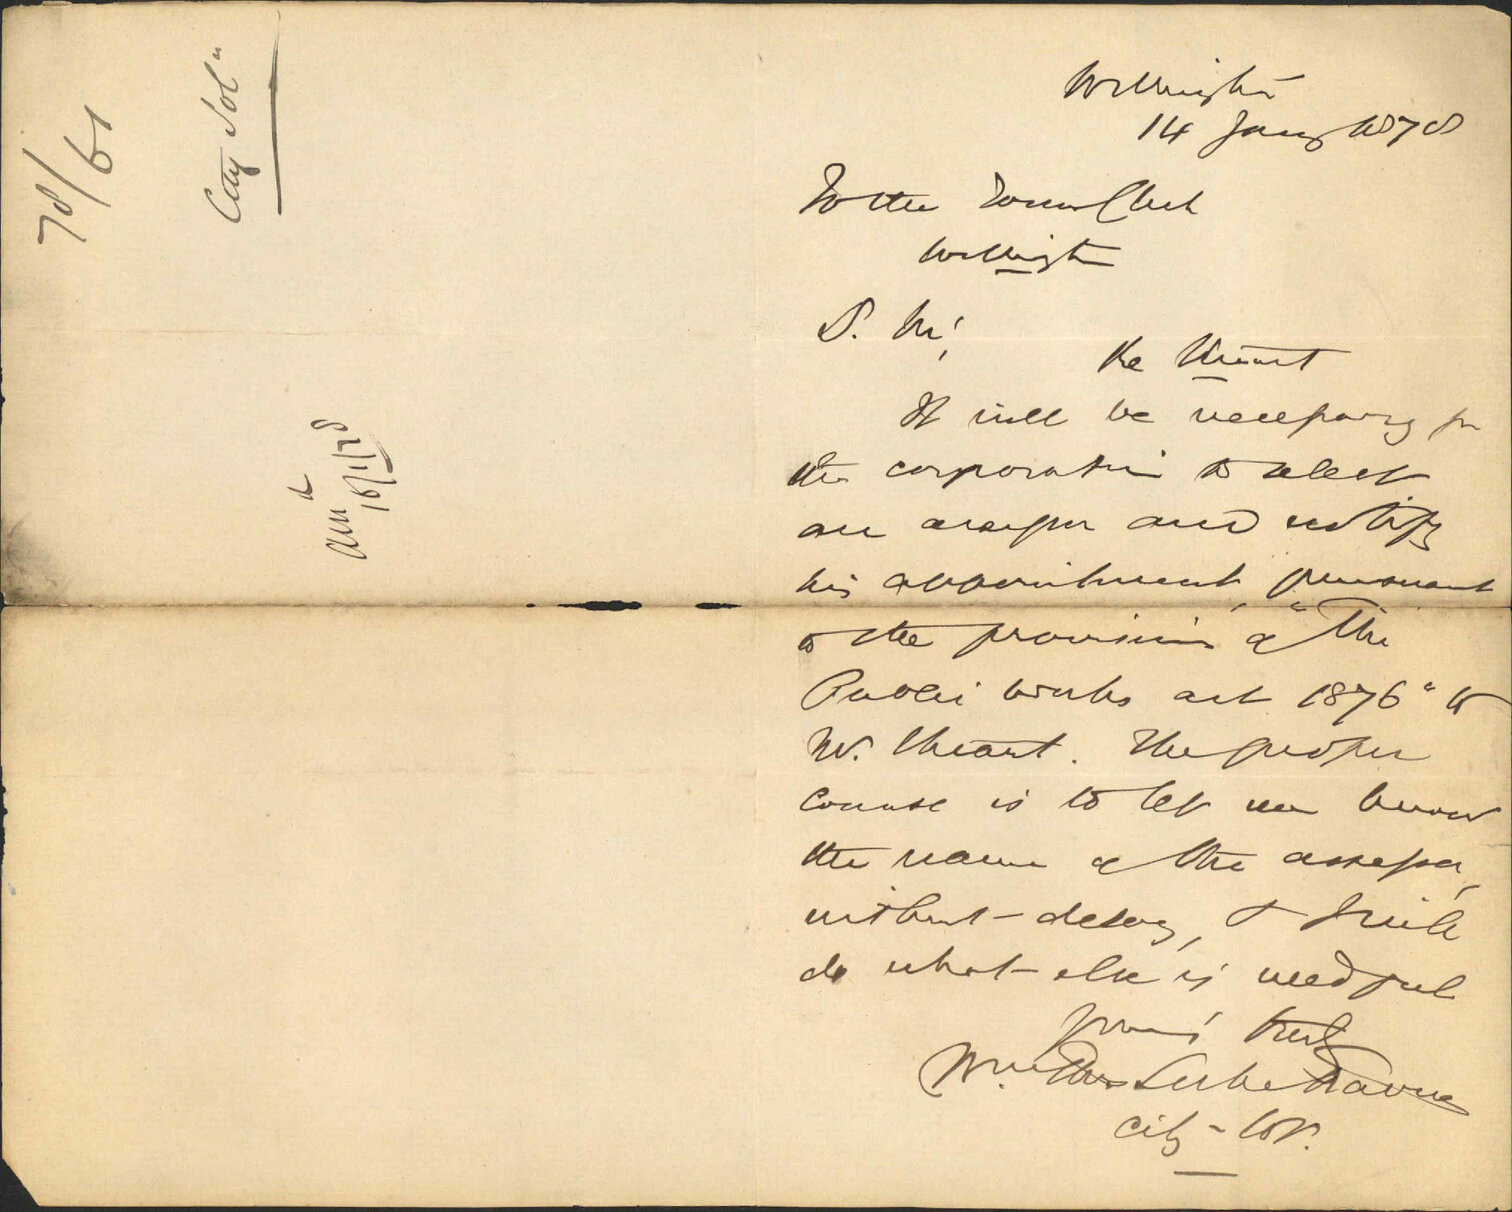 78/61
City Sol"
Ans'd
18/1/78
Wellington
14 Jany 1878
To the Town Clerk
Wellington
D. Sir,
Re
It will be necessary for
the corporation to select
an assessor and notify
his appointment, pursuant
to the provisions of "The
Public Works Act 1876" to
Mr. The proper
course is to let me know
the name of the assessor,
without delay, & I will
do what else is needful
Yours truly
Wm Thos Locke Travers
City Sol.